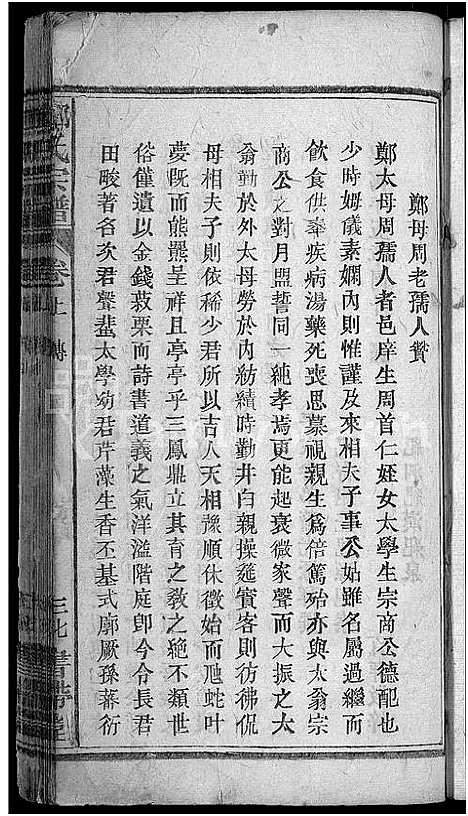 鄭母周老孺人贊
鄭太母周孺人者邑庠生周首仁姪女太學生宗商公德配也
少時姆儀素嫻內則惟謹及來相夫子事公姑雖名屬過繼而
飲食供奉疾病湯藥死喪思慕視親生爲倍篤殆亦與太翁宗
商公之對月盟誓同一純孝焉更能起衰微家聲而大振之太
翁勤於外太母勞於內紡績時勤井臼親操筵賓客則彷彿侃
母相夫子則依稀少君所以吉人天相豫順休徵始而虺蛇叶
夢既而熊羆呈祥且亭亭乎三鳳鼎立其育之敎之絶不類世
俗僅遺以金錢菽粟而詩書道義之氣洋溢階庭卽今令長君
田畯著名次君聲蜚太學幼君芹藻生香丕基式廓厥孫蕃衍
鄭氏宗譜
卷上
傳
書帶堂